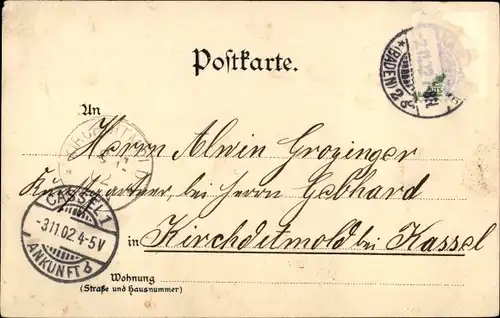 Postkarte.
(BADEN) 2
An
Herrn Alwin Grozinger
bei Herrn Gebhard
in Kirchditmold bei Kassel
CASSEL 1
-3.11.02. 4-5 V
ANKUNFT
Wohnung
(Straße und Hausnummer)